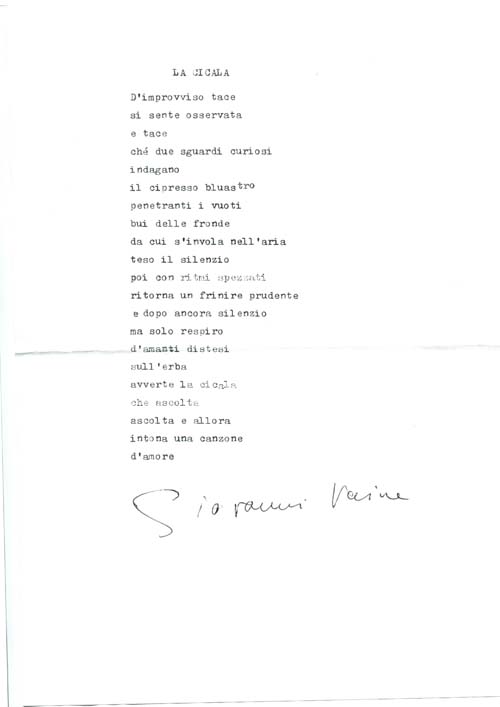 LA CICALA
D'improvviso tace
si sente osservata
e tace
ché due sguardi curiosi
indagano
il cipresso bluastro
penetranti i vuoti
bui delle fronde
da cui s'invola nell'aria
teso il silenzio
poi con ritmi spezzati
ritorna un frinire prudente
e dopo ancora silenzio
ma solo respiro
d'amanti distesi
sull'erba
avverte la cicala
che ascolta
ascolta e allora
intona una canzone
d'amore
Giovanni